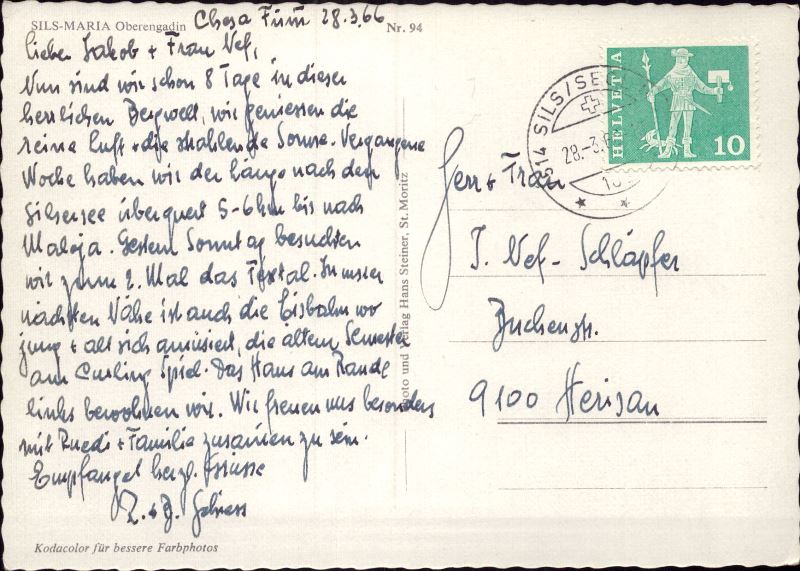 SILS-MARIA Oberengadin
Chesa Füm 28.3.66
Nr. 94
Lieber Jakob + Frau Nef,
Nun sind wir schon 8 Tage in dieser
herrlichen Bergwelt, wir geniessen die
reine Luft + die strahlende Sonne. Vergangene
Woche haben wir der Länge nach den
Silsersee überquert 5-6 km bis nach
Maloja. Gestern Sonntag besuchten
wir zum 2. Mal das Fextal. In unser
nächsten Nähe ist auch die Eisbahn wo
jung + alt sich amüsiert, die ältern Semester
am Curling Spiel. Das Haus am Rande
links bewohnen wir. Wir freuen uns besonders
mit Ruedi + Familie zusamen zu sein.
Empfanget herzl. Grüsse
Kodacolor für bessere Farbphotos
Foto und Verlag Hans Steiner, St. Moritz
SILS/SE
28.-3.
HELVETIA
10
Herr + Frau
J. Nef - Schläpfer
Buchenstr.
9100 Herisau